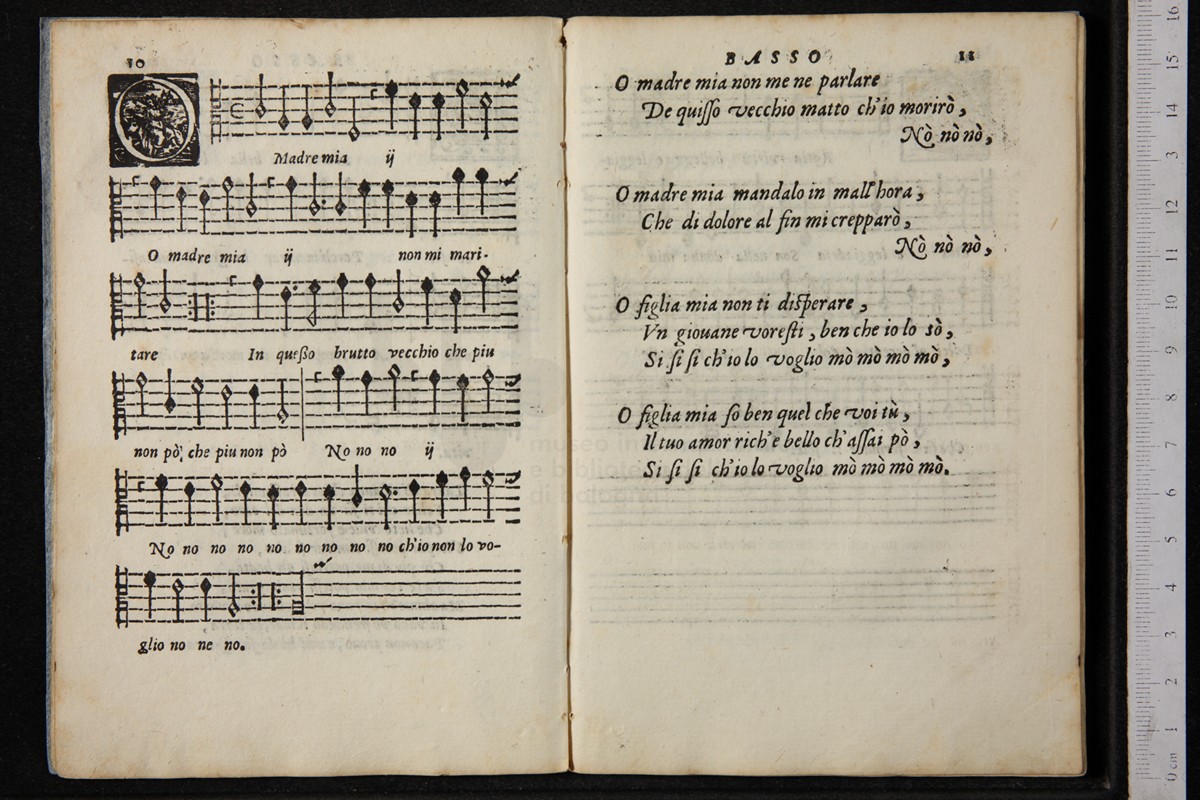 10
O Madre mia ij
O madre mia ij non mi mari-
tare In questo brutto vecchio che piu
non pò, che piu non pò No no no ij
No no no no no no no no no ch'io non lo vo-
glio no ne no.
BASSO 11
O madre mia non me ne parlare
De quisso vecchio matto ch'io morirò,
Nò nò nò,
O madre mia mandalo in mall'hora,
Che di dolore al fin mi crepparò,
Nò nò nò,
O figlia mia non ti disperare,
Vn giouane voresti, ben che io lo sò,
Si si si ch'io lo voglio mò mò mò mò,
O figlia mia so ben quel che voi tù,
Il tuo amor rich'e bello ch'assai pò,
Si si si ch'io lo voglio mò mò mò mò.
museo in
e bibliote
di bologna
0 cm 1 2 3 4 5 6 7 8 9 10 11 12 3 14 15 16